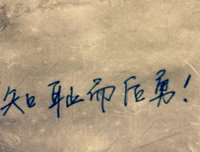 知耻而后勇!